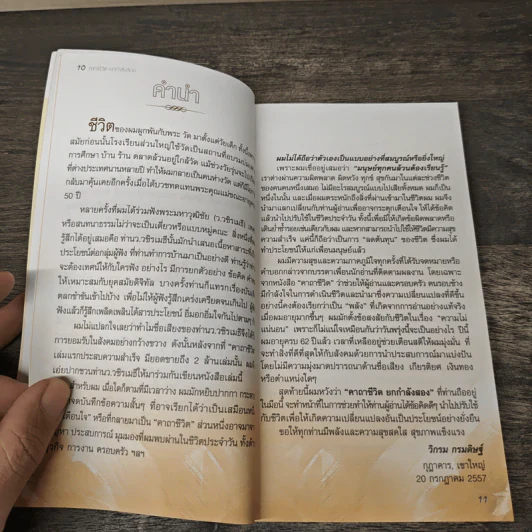 ๑๐
คำนำ
ชีวิตของผมผูกพันกับพระ วัด มาตั้งแต่วัยเด็ก
สมัยก่อนในโรงเรียนส่วนใหญ่ใช้วัดเป็นสถานที่อบรม
การศึกษา บ้าน ร้าน ตลาดล้วนอยู่ใกล้วัด แม้ช่วงวัยรุ่นจะไป
ที่ต่างประเทศนานหลายปี ทำให้ผมกลายเป็นคนห่างวัด
กลับมาคุ้นเคยอีกครั้งเมื่อได้บวชทดแทนพระคุณแม่
50 ปี
หลายครั้งที่ผมได้ร่วมฟังพระมหาวุฒิชัย (ว.วชิรเมธี)
หรือสนทนาธรรมไม่ว่าจะเป็นเดี่ยวหรือแบบหมู่คณะ สิ่งหนึ่งที่
รู้สึกได้อยู่เสมอคือ ท่านว.วชิรเมธีนั้นมักนำเสนอเนื้อหาสาระ
ประโยชน์ต่อกลุ่มผู้ฟัง ที่ท่านทำการบ้านมาเป็นอย่างดี
จะต้องเทศน์ให้กับใครฟัง อย่างไร มีการยกตัวอย่าง ข้อคิด
ให้เหมาะสมกับยุคสมัยดิจิทัล บางครั้งท่านก็แทรกเรื่อง
ตลกขำขันเข้าไปบ้าง เพื่อไม่ให้ผู้ฟังรู้สึกเคร่งเครียดจนเกินไป
ฟังแล้วก็รู้สึกเพลิดเพลินได้สาระประโยชน์ อิ่มอกอิ่มใจไปตาม
ผมไม่แปลกใจเลยว่าทำไมชื่อเสียงของท่านว.วชิรเมธีจึงได้
การยอมรับในสังคมอย่างกว้างขวาง ดังนั้นหลังจากที่ “คาถาชีวิต”
เล่มแรกประสบความสำเร็จ มียอดขายถึง 2 ล้านเล่มนั้น ผม
เอ่ยปากชวนท่านว.วชิรเมธีให้มาร่วมกันเขียนหนังสือเล่มนี้
สำหรับผม เมื่อใดก็ตามที่มีเวลาว่าง ผมมักหยิบปากกา
จดบันทึกข้อความสั้นๆ ที่อาจเรียกได้ว่าเป็นเสมือน
เตือนใจ” หรือที่กลายมาเป็น “คาถาชีวิต” ส่วนหนึ่งอาจมา
ประสบการณ์ มุมมองที่ผมพบผ่านในชีวิตประจำวัน ทั้ง
การงาน ครอบครัว ฯลฯ
ผมไม่ได้ถือว่าตัวเองเป็นแบบอย่างที่สมบูรณ์หรือยิ่งใหญ่
เพราะผมเชื่ออยู่เสมอว่า “มนุษย์ทุกคนล้วนต้องเรียนรู้”
เราต่างผ่านความผิดพลาด ผิดหวัง ทุกข์ สุขกันมาในแต่ละช่วงชีวิต
ของคนคนหนึ่งเสมอ ไม่มีอะไรสมบูรณ์แบบไปเสียทั้งหมด ผมก็เป็น
หนึ่งในนั้น และเมื่อผมตระหนักถึงสิ่งที่ผ่านเข้ามาในชีวิตผม ผมจึง
นำมาแลกเปลี่ยนกับท่านผู้อ่านเพื่ออาจกระตุกเตือนใจ ให้ได้ข้อคิด
แล้วนำไปปรับใช้ในชีวิตประจำวัน ทั้งนี้เพื่อมิให้เกิดข้อผิดพลาดหรือ
เดินย่ำซ้ำรอยเช่นเดียวกับผม และหากสามารถนำไปใช้ให้ชีวิตมีความสุข
ความสำเร็จ แค่นี้ก็ถือว่าเป็นการ “ลดต้นทุน” ของชีวิต ซึ่งผมได้
ทำประโยชน์ให้แก่เพื่อนมนุษย์แล้ว
ผมมีความสุขและความภาคภูมิใจทุกครั้งที่ได้รับจดหมายหรือ
คำบอกกล่าวจากบรรดาเพื่อนนักอ่านที่ติดตามผลงาน โดยเฉพาะ
จากหนังสือ “คาถาชีวิต” ว่าช่วยให้ผู้อ่านและครอบครัว คนรอบข้าง
มีกำลังใจในการดำเนินชีวิตและนำมาซึ่งความเปลี่ยนแปลงที่ดีขึ้น
อย่างนี้คงต้องเรียกว่าเป็น “พลัง” ที่เกิดจากการอ่านอย่างแท้จริง
เมื่อผมอายุมากขึ้นๆ ผมมักตั้งข้อสงสัยกับชีวิตในเรื่อง “ความไม่
แน่นอน” เพราะก็ไม่แน่ใจเหมือนกันว่าวันพรุ่งนี้จะเป็นอย่างไร ปีนี้
ผมอายุครบ 62 ปีแล้ว เวลาที่เหลืออยู่ช่วยเตือนสติให้ผมมุ่งมั่น ที่
จะทำสิ่งที่ดีที่สุดให้กับสังคมด้วยการนำประสบการณ์มาแบ่งปัน
โดยไม่มีความมุ่งมาดปรารถนาด้านชื่อเสียง เกียรติยศ เงินทอง
หรือตำแหน่งใดๆ
สุดท้ายนี้ผมหวังว่า “คาถาชีวิต ยกกำลังสอง” ที่ท่านถืออยู่
ในมือนี้ จะทำหน้าที่ในการช่วยทำให้ท่านผู้อ่านได้ข้อคิดดีๆ นำไปปรับใช้
กับชีวิตเพื่อให้เกิดความเปลี่ยนแปลงอันเป็นประโยชน์อย่างยั่งยืน
ขอให้ทุกท่านมีพลังและความสุขสดใส สุขภาพแข็งแรง
วิกรม กรมดิษฐ์
กุฎาคาร, เขาใหญ่
20 กรกฎาคม 2557
๑๑